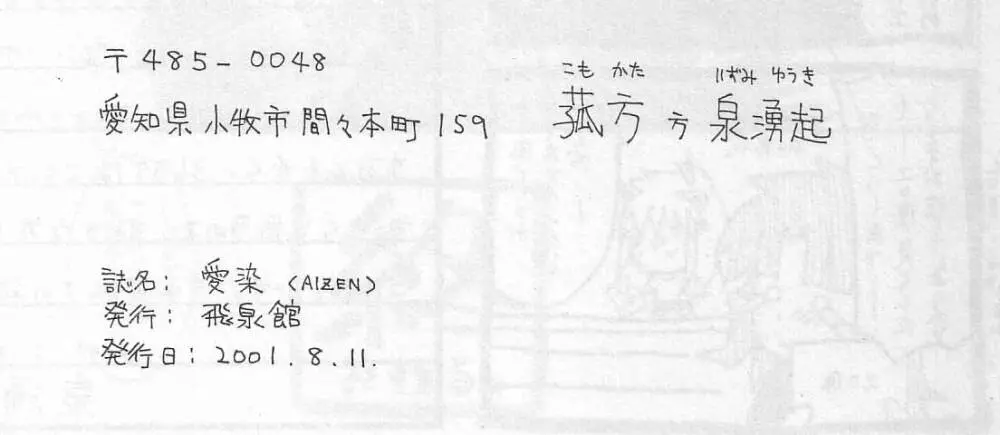 〒485-0048
こも かた いずみ ゆうき
愛知県小牧市間々本町159 菰方方 泉湧起
誌名: 愛染 (AIZEN)
発行: 飛泉館
発行日: 2001.8.11.